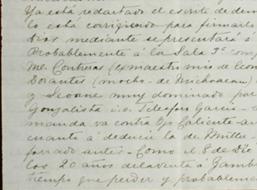 Ya está redactado el escrito de den
lo está corrigiendo para firmarlo
días mediante se presentará a
Probablemente a la Sala 3ª con
Me. Contreras (exmaestro mío de
Dorantes (mocho- de Michoacan)
y Seoane muy dominado por
Gonzalista Lic. Telesforo Garcia-
manda va contra Ojo Caliente
cuanto a deducir la de
forrado antes- Como el 8 de Dic
los 20 años
tiempo que perder y probablemen